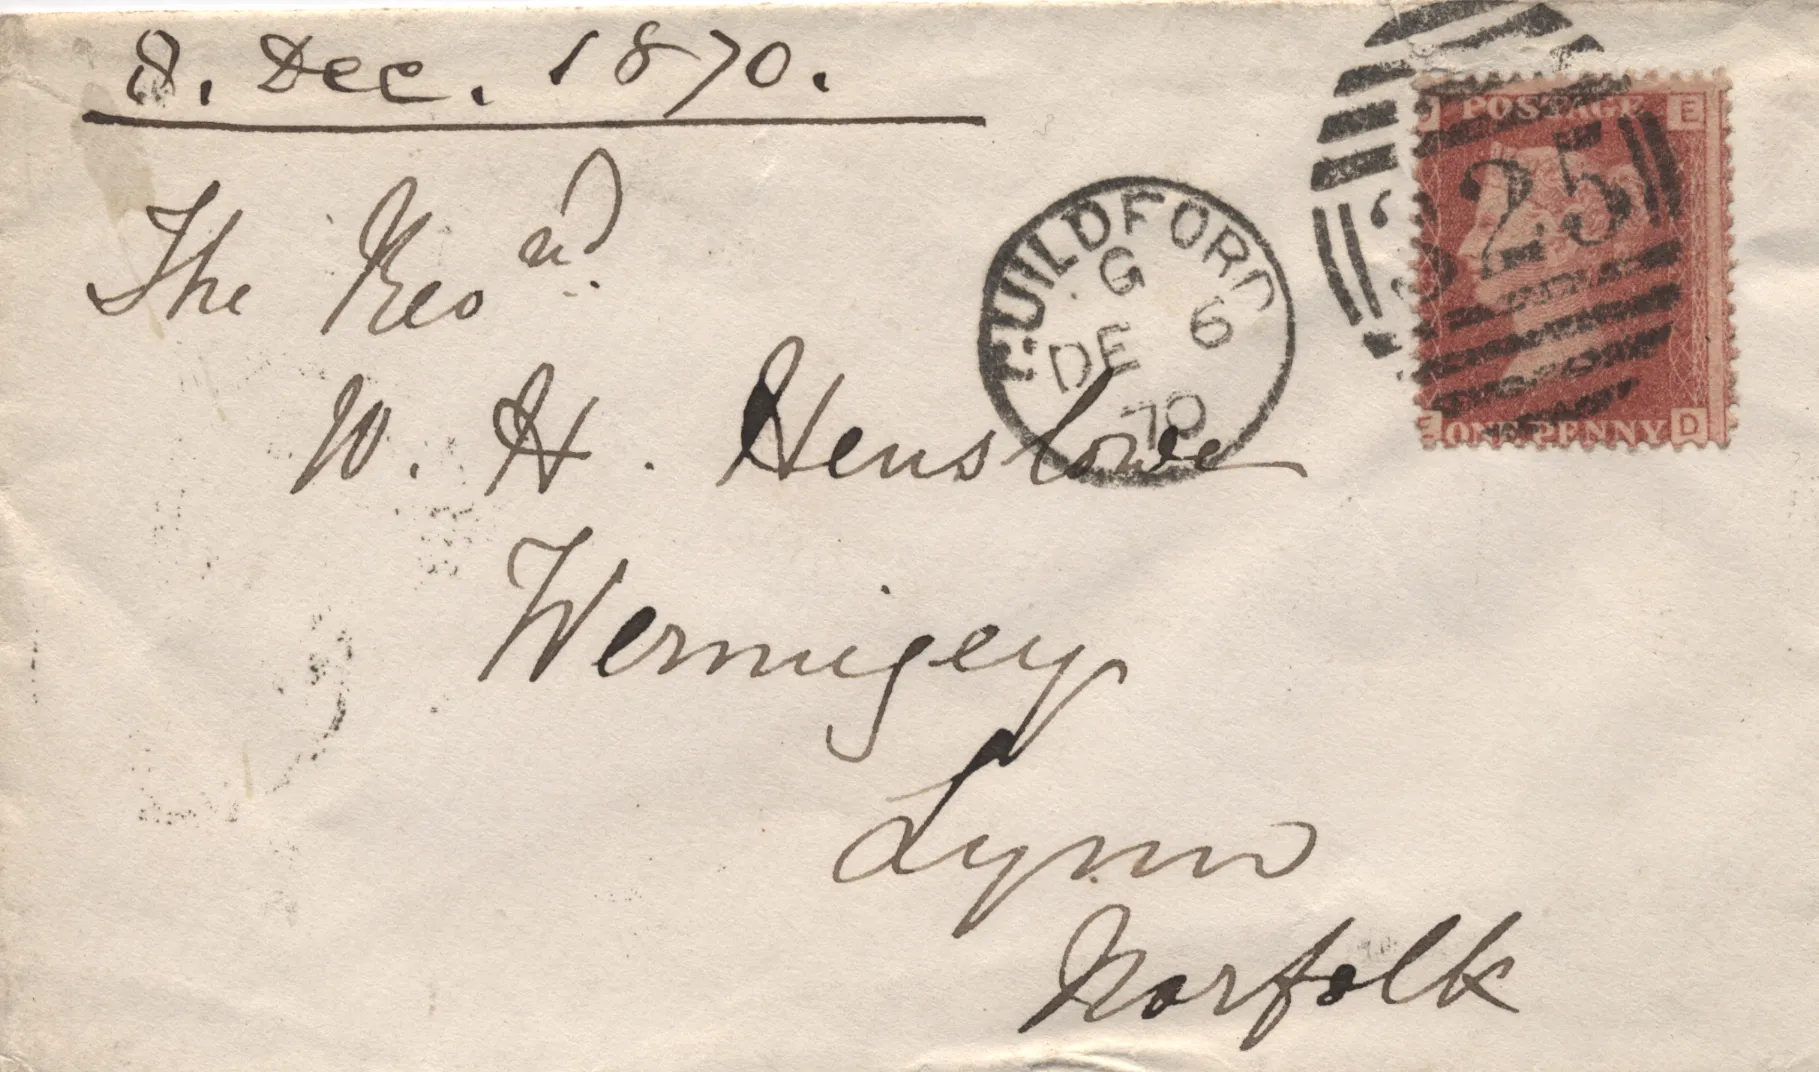 8. Dec. 1870.
The Revnd.
W. H. Henslowe
Wermigey
Lynn
Norfolk
GUILDFORD
G
DE 6
70
325
POSTAGE E
E ONE PENNY D